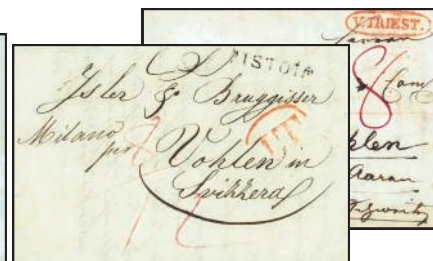 PISTOIA
Isler & Bruggisser
Milano
per
Vohlen in
Svikkera
LT
V.TRIEST.
8
hlen
Aarau